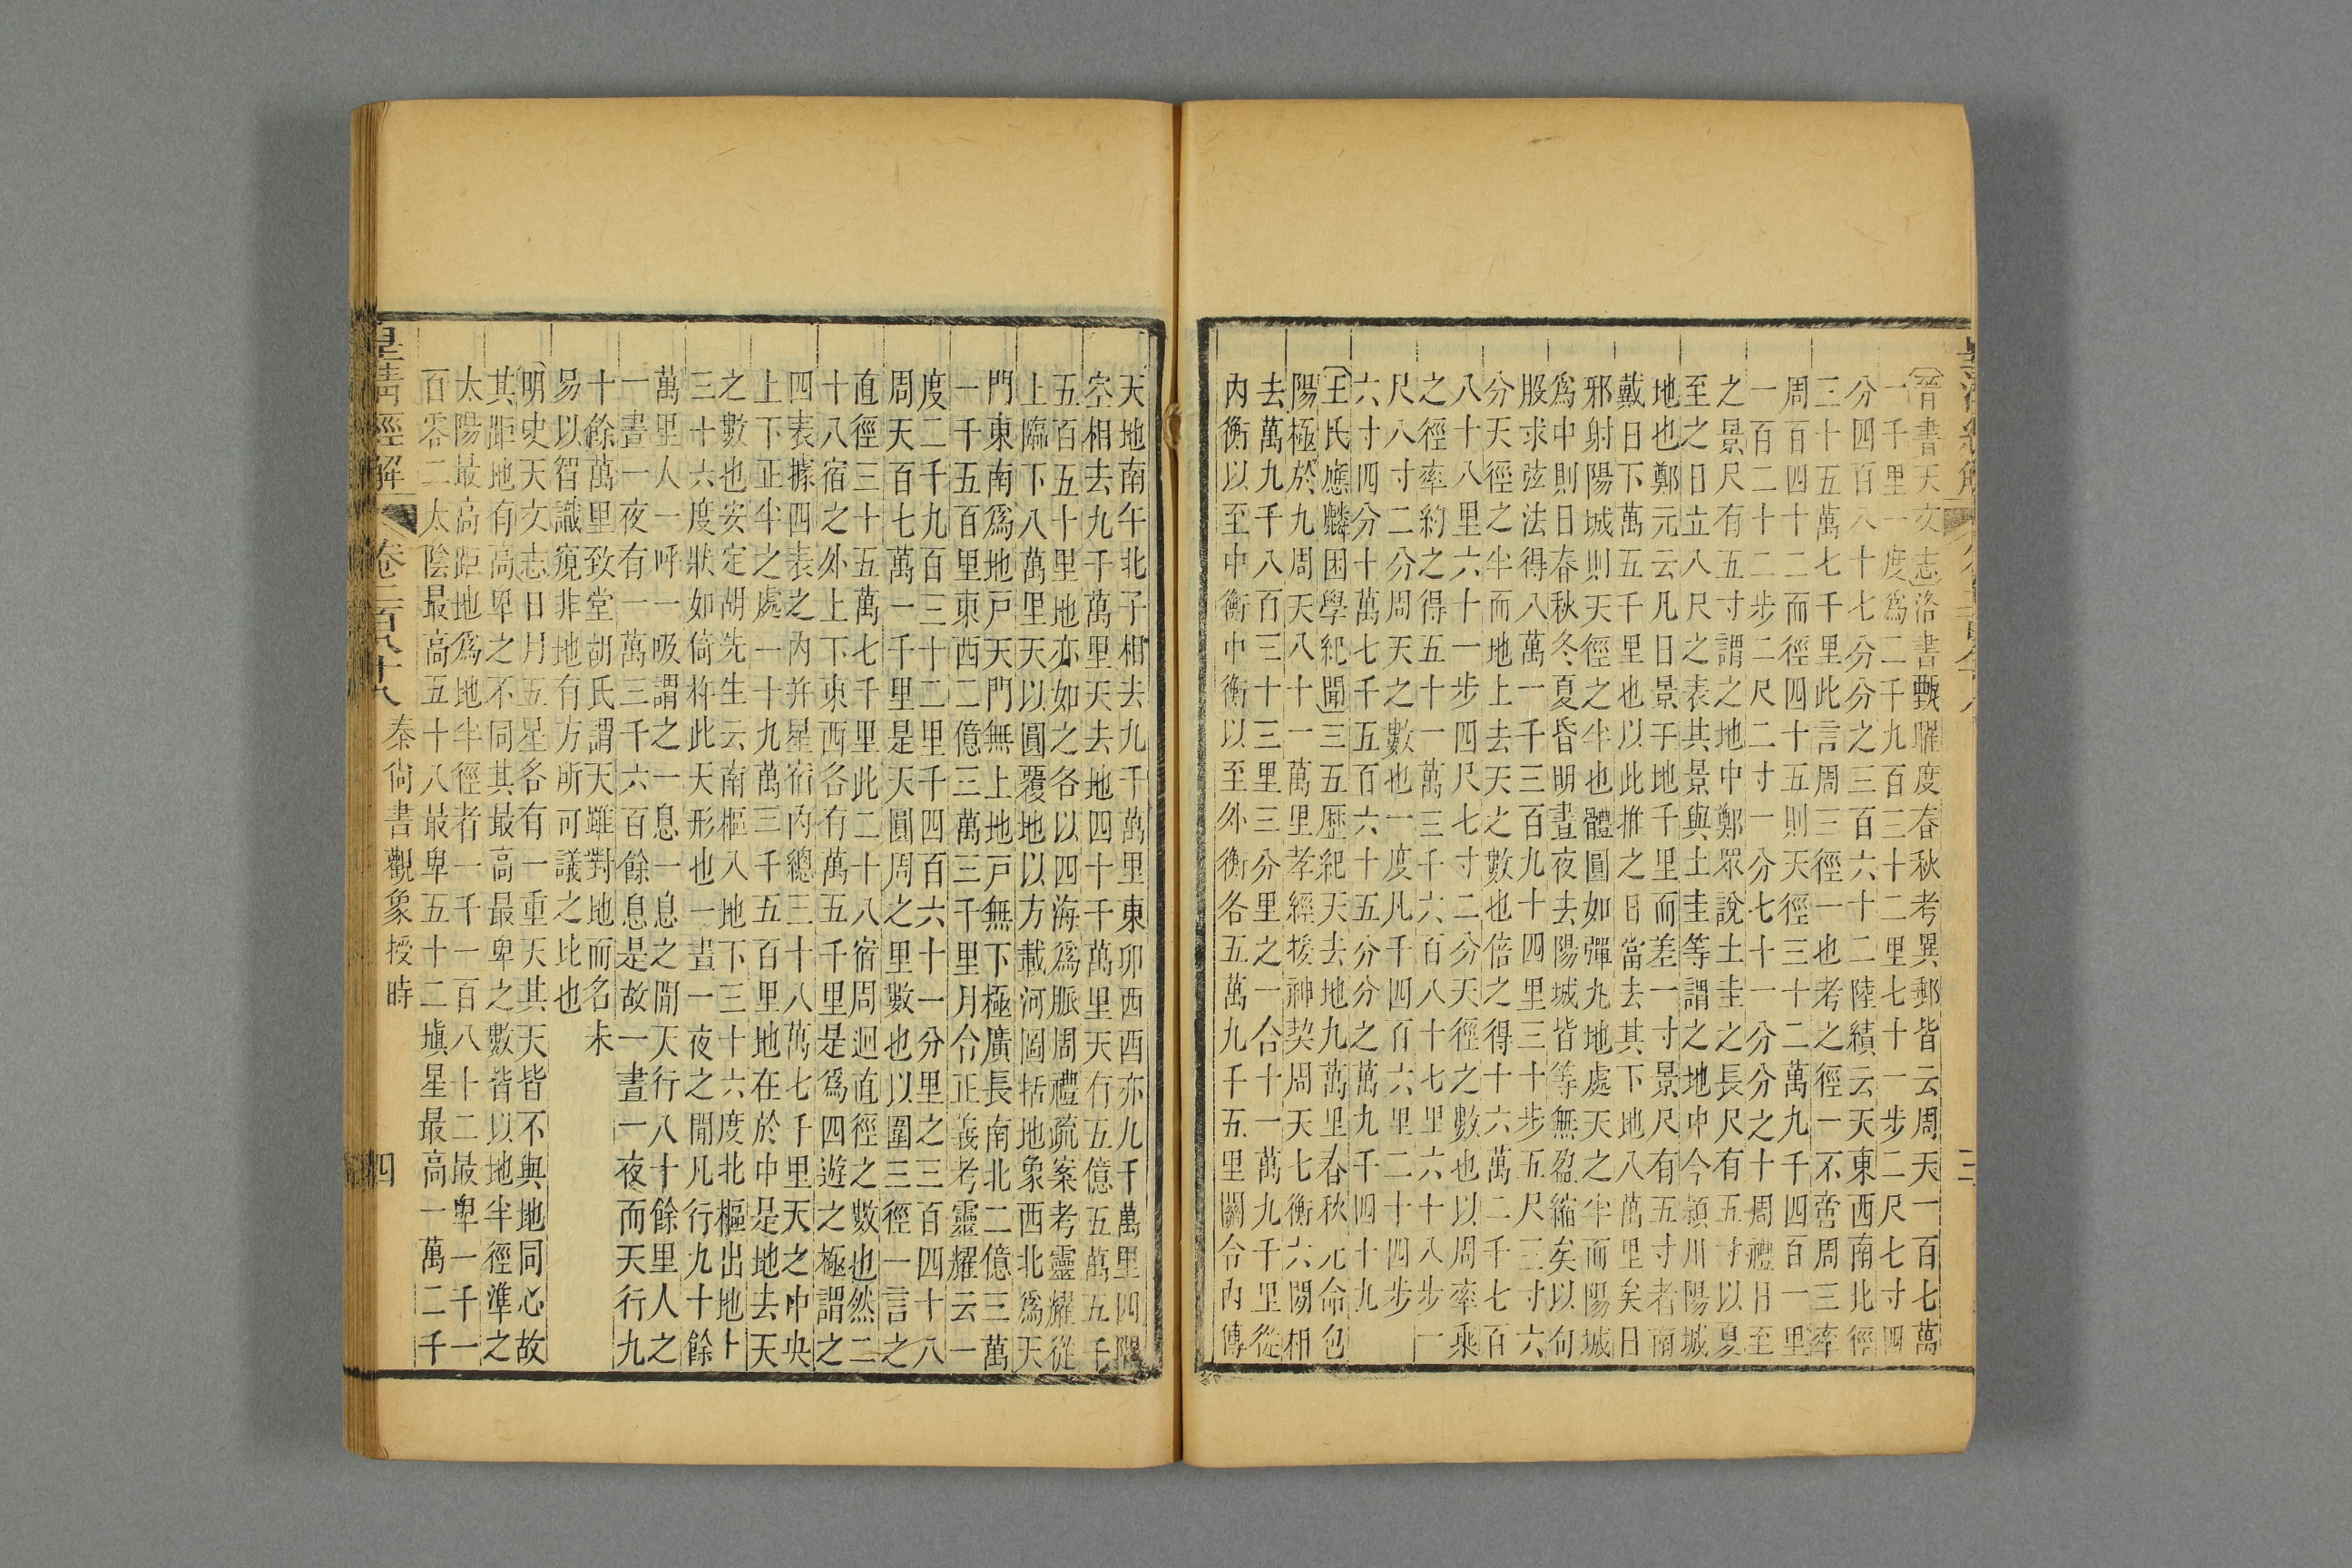 晉書天文志洛書甄曜度春秋考異郵皆云周天一百七萬
一千里一度爲二千九百三十二里七十一步二尺七寸四
分四百八十七分分之三百六十二陸績云天東西南北徑
三十五萬七千里此言周三徑一也考之徑一不啻周三率
周百四十二而徑四十五則天徑三十二萬九千四百一里
一百二十二步二尺二寸一分七十一分分之十周禮日至
之景尺有五寸謂之地中鄭眾說土圭之長尺有五寸以夏
至之日立八尺之表其景與土圭等謂之地中今潁川陽城
地也鄭元云凡日景子地千里而差一寸景尺有五寸者南
戴日下萬五千里也以此推之日當去其下地八萬里矣日
邪射陽城則天徑之半也體圓如彈丸地處天之半而陽城
爲中則日春秋冬夏昏明晝夜去陽城皆等無盈縮矣以句
股求弦法得八萬一千三百九十四里三十步五尺三寸六
分天徑之半而地上去天之數也倍之得十六萬二千七百
八十八里六十一步四尺七寸二分天徑之數也以周率乘
之徑率約之得五十一萬三千六百八十七里六十八步一
尺八寸二分周天之數也一度凡千四百六里二十四步
六寸四分十萬七千五百六十五分分之萬九千四十九
王氏應麟困學紀聞三五歷紀天去地九萬里春秋元命包
陽極於九周天八十一萬里孝經援神契周天七衡六閒相
去萬九千八百三十三里三分里之一合十一萬九千里從
內衡以至中衡中衡以至外衡各五萬九千五里關令內傳
三
天地南午北子相去九千萬里東卯西酉亦九千萬里四隅
空相去九千萬里天去地四十千萬里天有五億五萬五千
五百五十里地亦如之各以四海爲脈周禮疏案考靈耀從
上臨下八萬里天以圓覆地以方載河圖括地象西北爲天
門東南爲地戶天門無上地戶無下極廣長南北二億三萬
一千五百里東西二億三萬三千里月合正義考靈耀云一
度二千九百三十二里千四百六十一分里之三百四十八
周天百七萬一千里是天圓周之里數也以圍三徑一言之
直徑三十五萬七千里此二十八宿周迴直徑之數也然二
十八宿之外上下東西各有萬五千里是爲四遊之極謂之
四表據四表之內并星宿內總三十八萬七千里天之中央
上下正半之處一十九萬三千五百里地在於中是地去天
之數也安定胡先生云南樞入地下三十六度北樞出地上
三十六度狀如倚杵此天形也一晝一夜之閒凡行九十餘
萬里人一呼一吸謂之一息一息之閒天行八十餘里人之
一晝一夜有一萬三千六百餘息是故一晝一夜而天行九
十餘萬里致堂胡氏謂天雖對地而名未
易以智識窺非地有方所可議之比也
明史天文志日月五星各有一重天其天皆不與地同心故
其距地有高卑之不同其最高最卑之數皆以地半徑準之
太陽最高距地爲地半徑者一千一百八十二最卑一千一
百零二太陰最高五十八最卑五十二塡星最高一萬二千
皇清經解
秦尚書觀象授時
四